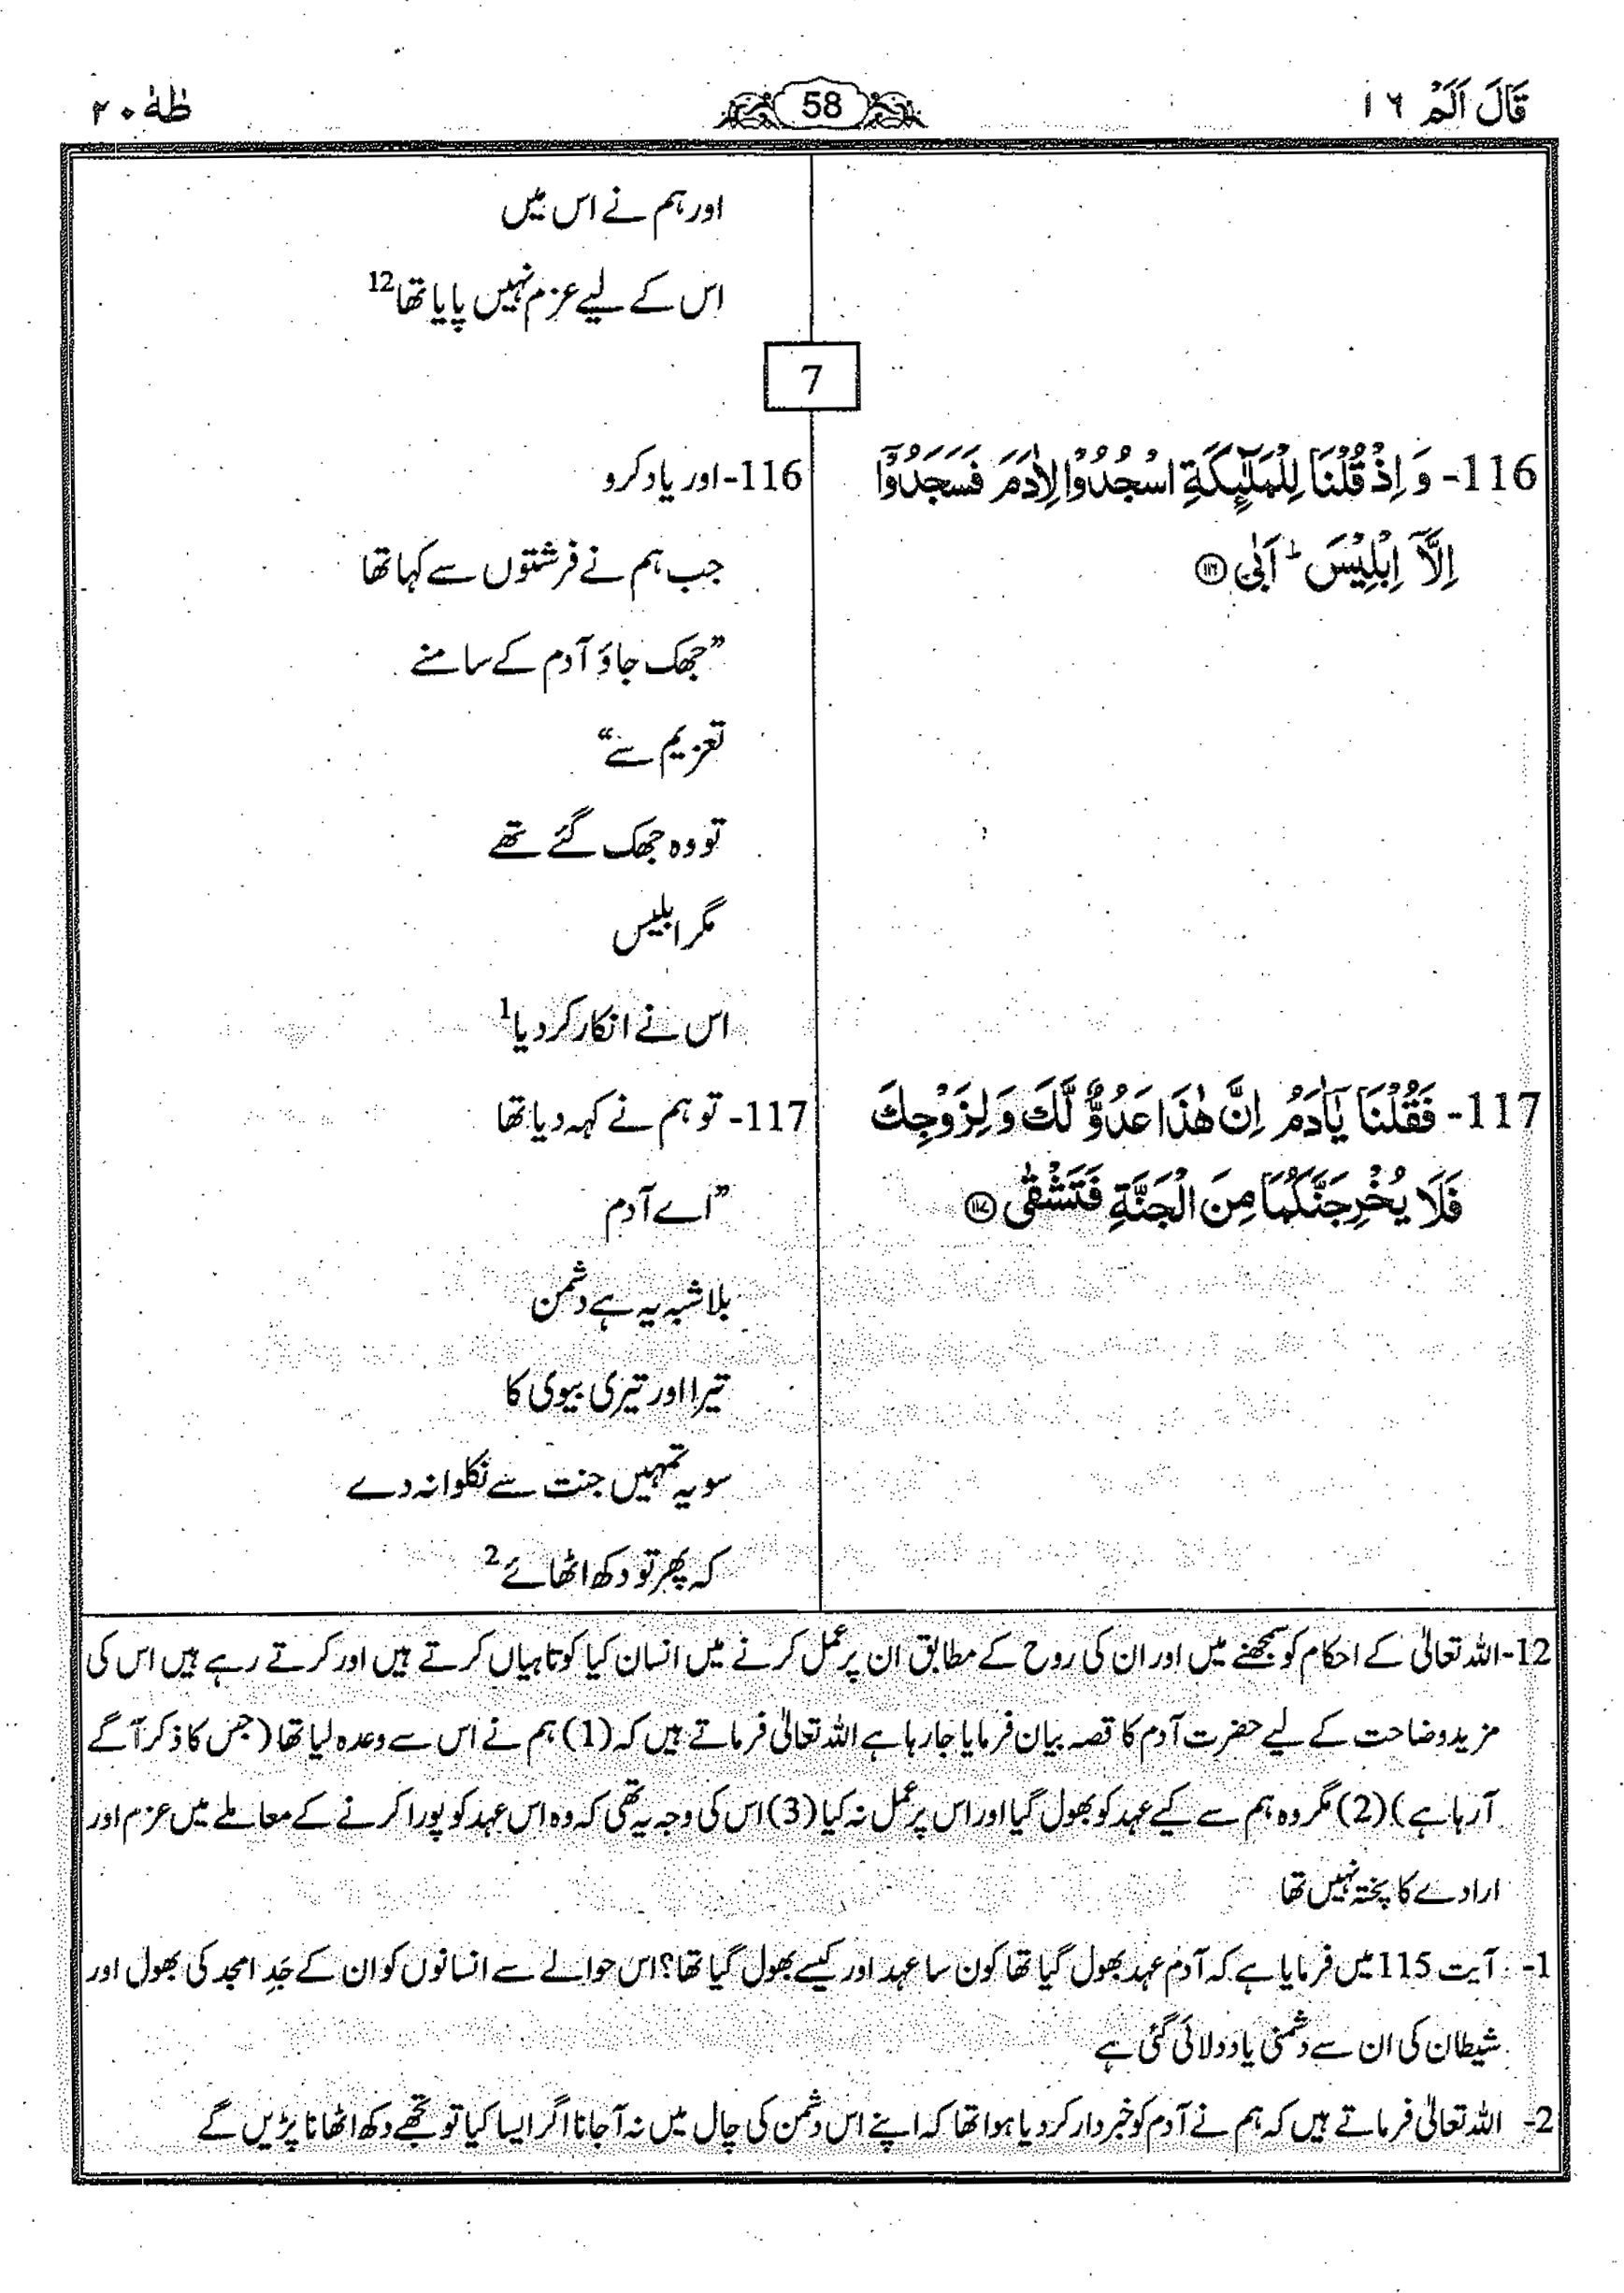 قَالَ اَلَمْ ١٦
58
طٰهٰ ٢٠
اور ہم نے اس میں
اس کے لیے عزم نہیں پایا تھا12
7
116- وَ اِذْ قُلْنَا لِلْمَلٰٓئِكَةِ اسْجُدُوْا لِاٰدَمَ فَسَجَدُوْۤا
اِلَّاۤ اِبْلِيْسَ ؕ اَبٰى ﴿۱۱۶﴾
116- اور یاد کرو
جب ہم نے فرشتوں سے کہا تھا
”جھک جاؤ آدم کے سامنے
تعزیم سے“
تو وہ جھک گئے تھے
مگر ابلیس
اس نے انکار کر دیا1
117- فَقُلْنَا يٰۤاٰدَمُ اِنَّ هٰذَا عَدُوٌّ لَّكَ وَ لِزَوْجِكَ
فَلَا يُخْرِجَنَّكُمَا مِنَ الْجَنَّةِ فَتَشْقٰى ﴿۱۱۷﴾
117- تو ہم نے کہہ دیا تھا
”اے آدم
بلا شبہ یہ ہے دشمن
تیرا اور تیری بیوی کا
سو یہ تمہیں جنت سے نکلوا نہ دے
کہ پھر تو دکھ اٹھائے2
12- اللہ تعالیٰ کے احکام کو سمجھنے میں اور ان کی روح کے مطابق ان پر عمل کرنے میں انسان کیا کوتاہیاں کرتے ہیں اور کرتے رہے ہیں اس کی
مزید وضاحت کے لیے حضرت آدم کا قصہ بیان فرمایا جا رہا ہے اللہ تعالیٰ فرماتے ہیں کہ (1) ہم نے اس سے وعدہ لیا تھا (جس کا ذکر آگے
آ رہا ہے) (2) مگر وہ ہم سے کیے عہد کو بھول گیا اور اس پر عمل نہ کیا (3) اس کی وجہ یہ تھی کہ وہ اس عہد کو پورا کرنے کے معاملے میں عزم اور
ارادے کا پختہ نہیں تھا
1- آیت 115 میں فرمایا ہے کہ آدم عہد بھول گیا تھا کون سا عہد اور کیسے بھول گیا تھا؟ اس حوالے سے انسانوں کو ان کے جَدِ امجد کی بھول اور
شیطان کی ان سے دشمنی یاد دلائی گئی ہے
2- اللہ تعالیٰ فرماتے ہیں کہ ہم نے آدم کو خبردار کر دیا ہوا تھا کہ اپنے اس دشمن کی چال میں نہ آ جانا اگر ایسا کیا تو تجھے دکھ اٹھانا پڑیں گے